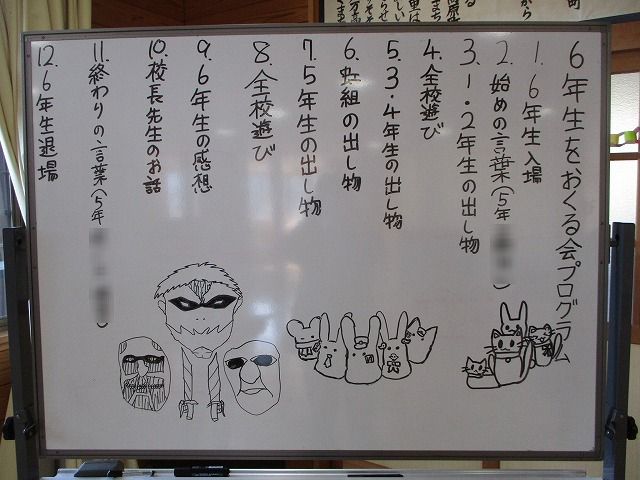 ６年生をおくる会プログラム
1. ６年生入場
2. 始めの言葉(5年
3. 1・2年生の出し物
4. 全校遊び
5. 3・4年生の出し物
6. 虹組の出し物
7. 5年生の出し物
8. 全校遊び
9. 6年生の感想
10. 校長先生のお話
11. 終わりの言葉(5年
12. 6年生退場